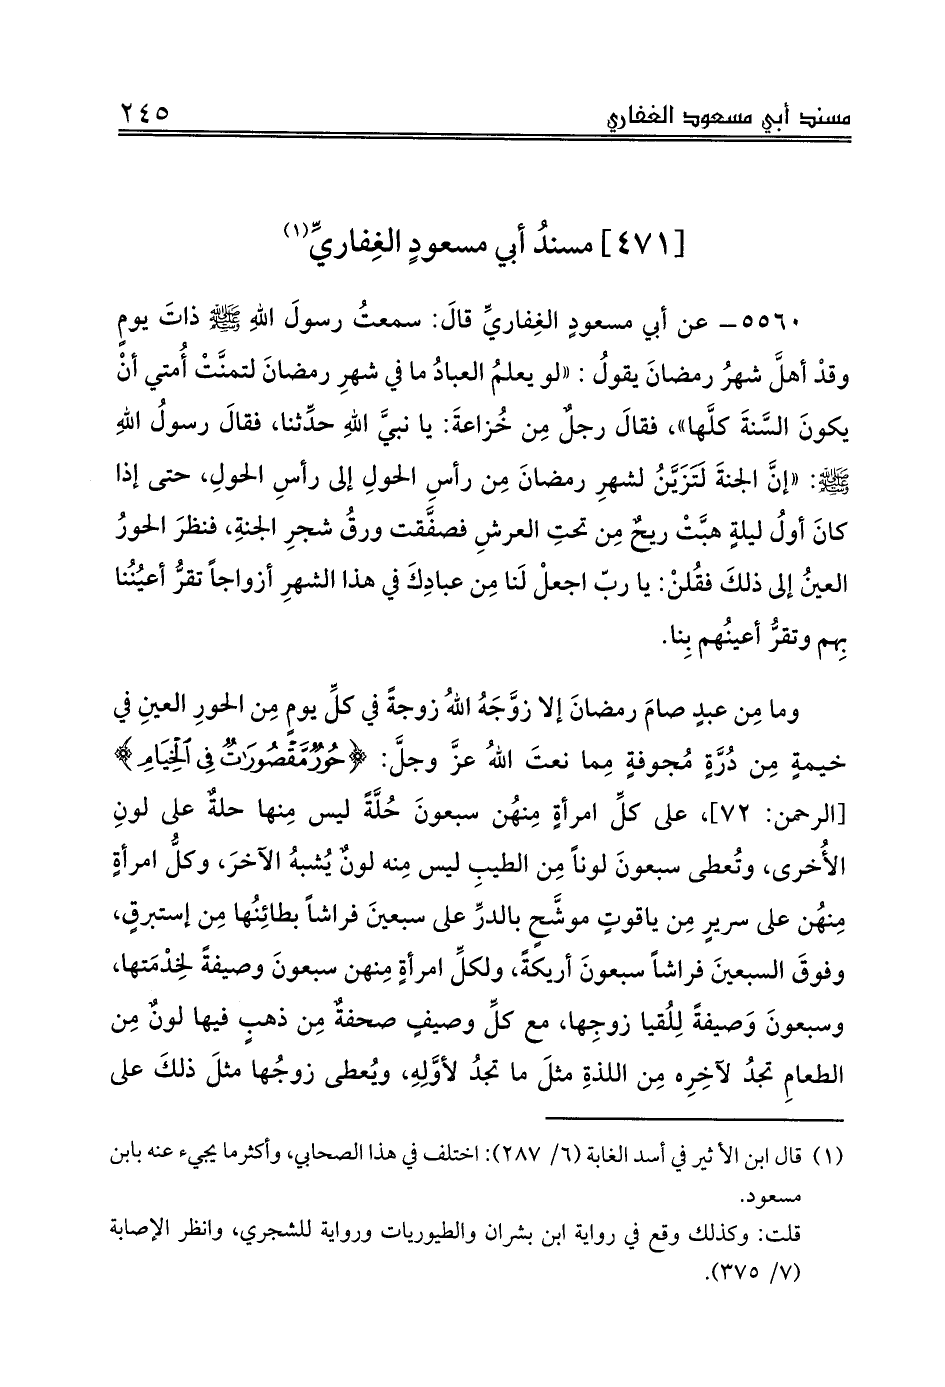 مسند أبي مسعود الغفاري ٢٤٥
[٤٧١] مسندُ أبي مسعودٍ الغِفاريِّ(١)
٥٥٦٠ـ عن أبي مسعودٍ الغِفاريِّ قالَ: سمعتُ رسولَ اللهِ ﷺ ذاتَ يومٍ
وقدْ أهلَّ شهرُ رمضانَ يقولُ: «لو يعلمُ العبادُ ما في شهرِ رمضانَ لتمنَّتْ أُمتي أنْ
يكونَ السَّنةَ كلَّها»، فقالَ رجلٌ مِن خُزاعةَ: يا نبيَّ اللهِ حدِّثنا، فقالَ رسولُ اللهِ
ﷺ: «إنَّ الجنةَ لَتَزَيَّنُ لشهرِ رمضانَ مِن رأسِ الحولِ إلى رأسِ الحولِ، حتى إذا
كانَ أولُ ليلةٍ هبَّتْ ريحٌ مِن تحتِ العرشِ فصفَّقت ورقُ شجرِ الجنةِ، فنظرَ الحورُ
العينُ إلى ذلكَ فقُلنْ: يا ربّ اجعلْ لَنا مِن عبادِكَ في هذا الشهرِ أزواجاً تقرُّ أعيُنُنا
بِهم وتقرُّ أعينُهم بِنا.
وما مِن عبدٍ صامَ رمضانَ إلا زوَّجَهُ اللهُ زوجةً في كلِّ يومٍ مِن الحورِ العينِ في
خيمةٍ مِن دُرَّةٍ مُجوفةٍ مِما نعتَ اللهُ عزَّ وجلَّ: ﴿حُورٌ مَّقْصُورَاتٌ فِى ٱلْخِيَامِ﴾
[الرحمن: ٧٢]، على كلِّ امرأةٍ مِنهُن سبعونَ حُلَّةً ليس مِنها حلةٌ على لونِ
الأُخرى، وتُعطى سبعونَ لوناً مِن الطيبِ ليس مِنه لونٌ يُشبهُ الآخرَ، وكلُّ امرأةٍ
مِنهُن على سريرٍ مِن ياقوتٍ موشَّحٍ بالدرِّ على سبعينَ فراشاً بطائِنُها مِن إستبرقٍ،
وفوقَ السبعينَ فراشاً سبعونَ أريكةً، ولكلِّ امرأةٍ مِنهن سبعونَ وصيفةً لخِدْمَتها،
وسبعونَ وَصيفةً لِلُقيا زوجِها، مع كلِّ وصيفٍ صحفةٌ مِن ذهبٍ فيها لونٌ مِن
الطعامِ تجدُ لآخِرِه مِن اللذةِ مثلَ ما تجدُ لأوَّلِهِ، ويُعطى زوجُها مثلَ ذلكَ على
(١) قال ابن الأثير في أسد الغابة (٦/ ٢٨٧): اختلف في هذا الصحابي، وأكثر ما يجيء عنه بابن
مسعود.
قلت: وكذلك وقع في رواية ابن بشران والطيوريات ورواية للشجري، وانظر الإصابة
(٧/ ٣٧٥).